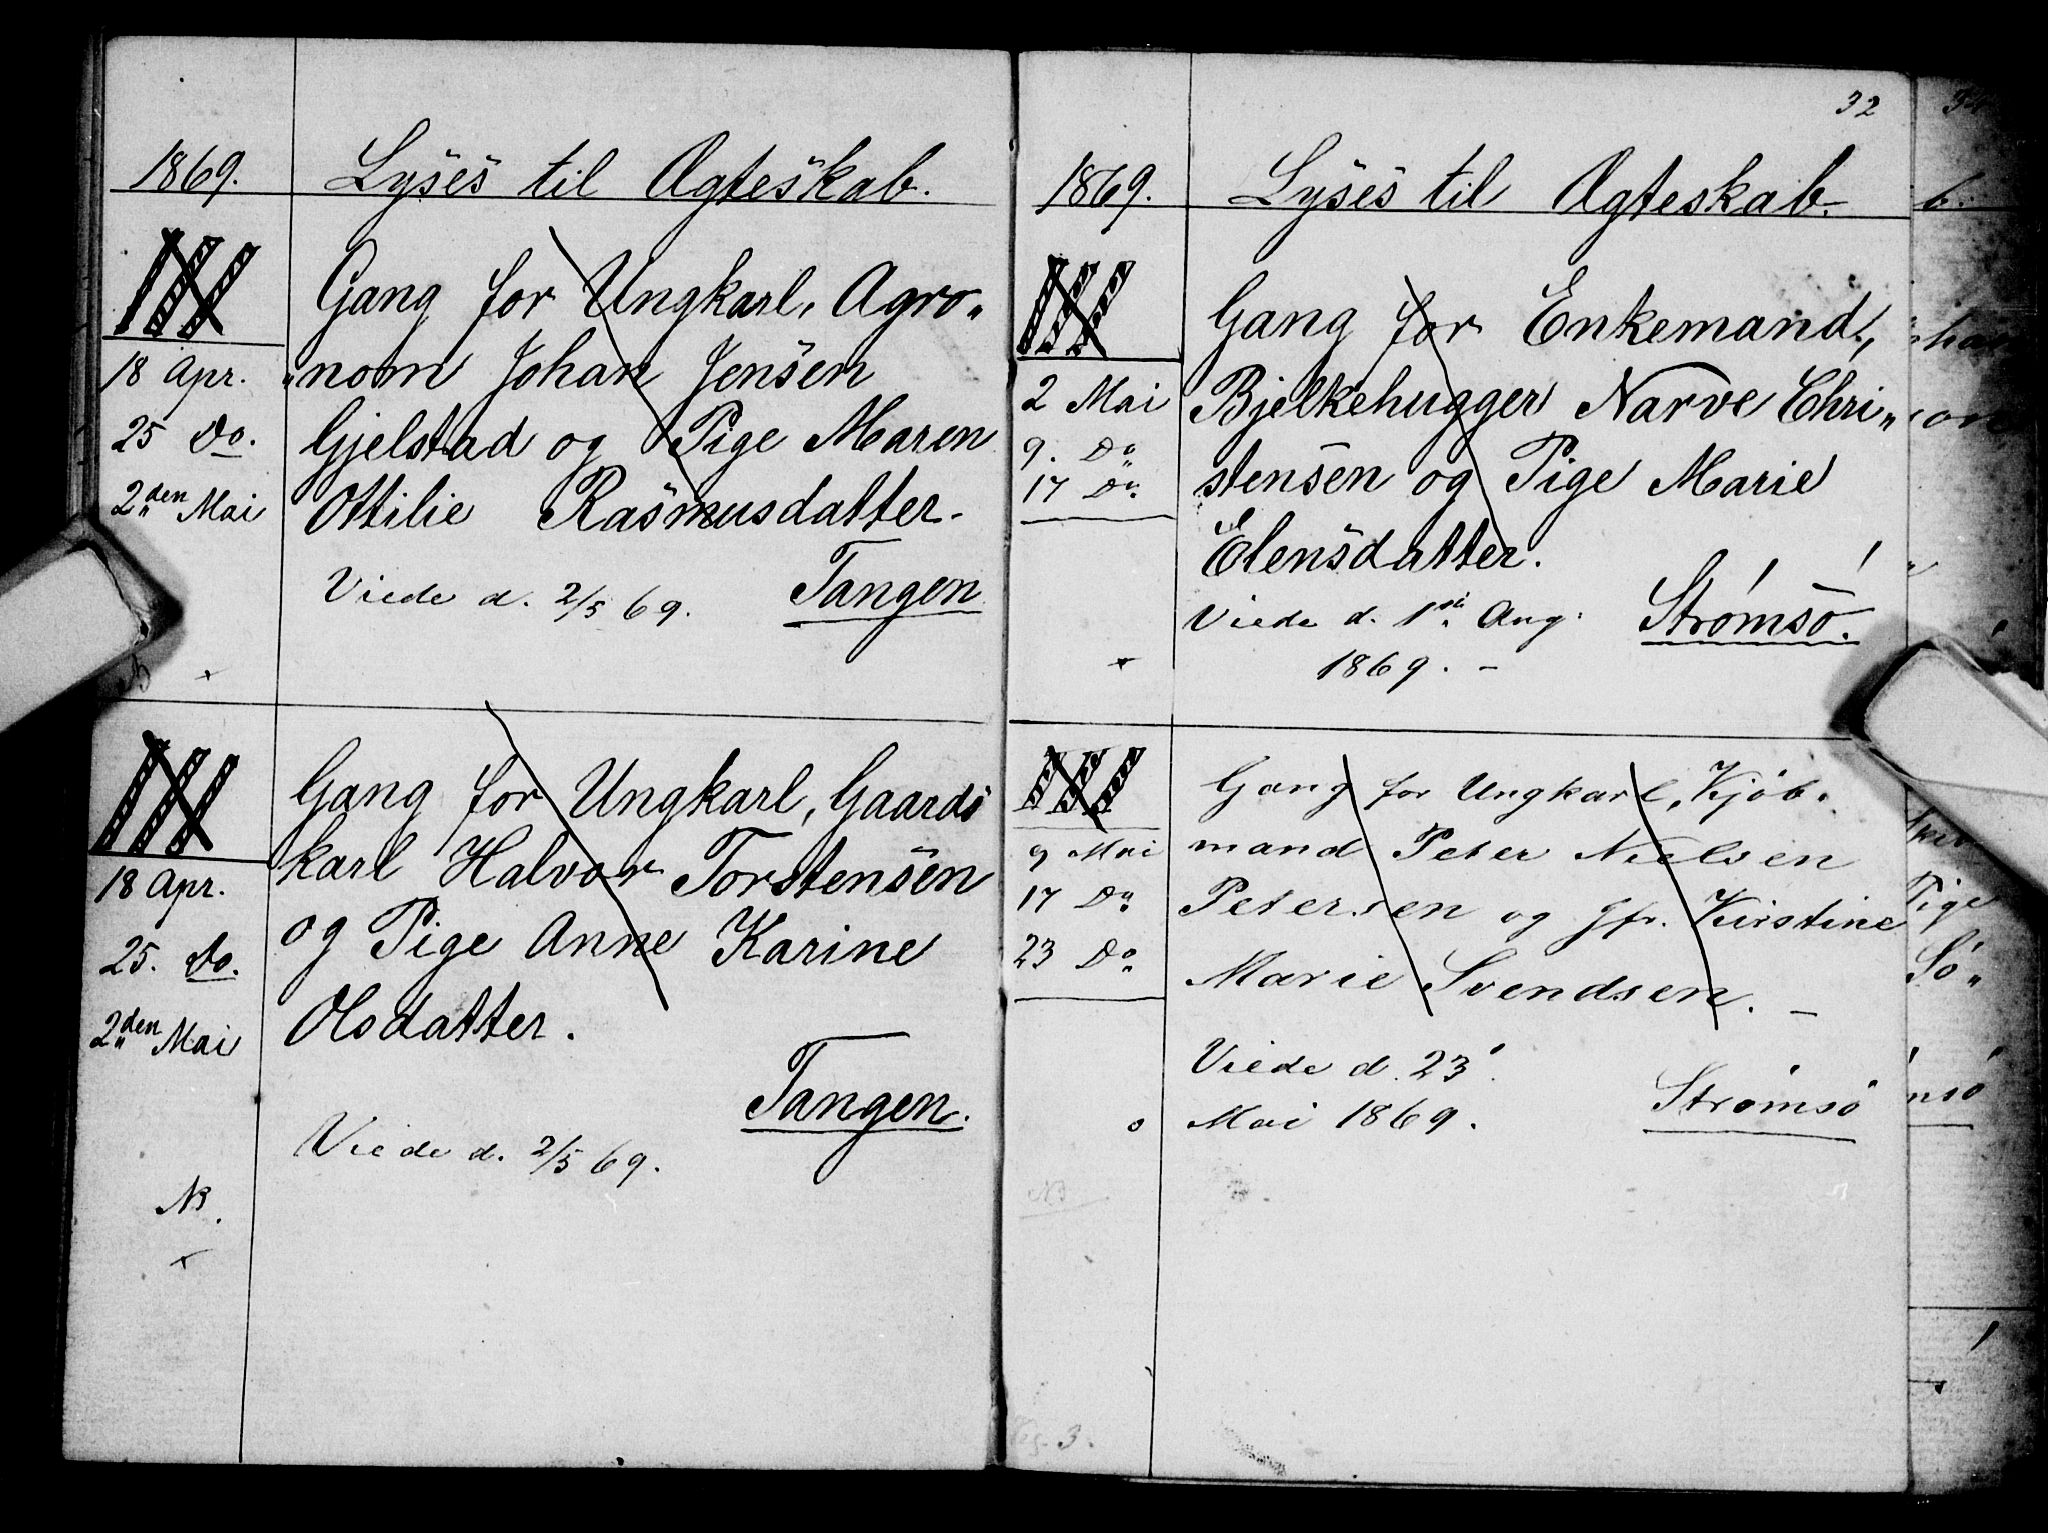 1869. Lyses til Ægteskab.
III
Gang for Ungkarl, Agro„
18 Apr. „nom Johan Jensen
25 Do. Gjelstad og Pige Maren
2den Mai Ottilie Rasmusdatter.
Viede d. 2/5 69. Tangen
III
Gang for Ungkarl, Gaards
karl Halvor Torstensen
18 Apr.
og Pige Anne Karine
25. Do.
Olsdatter.
2den Mai
Tangen.
Viede d. 2/5 69.
NB.
32
1869. Lyses til Ægteskab.
III
Gang for Enkemand,
2 Mai Bjelkehugger Narve Chri„
9. Do
17 Do stensen og Pige Marie
Elensdatter.
Viede d. 1ste Aug. Strømsö.
1869. –
III
Gang for Ungkarl, Kjöb„
9 Mai mand Peter Nielsen
17 Do Petersen og Jfr. Kirstine
23 Do Marie Svendsen. –
Viede d. 23'
Mai 1869. Strømsö
NB
3.
b.
Pige
Sö„
msö